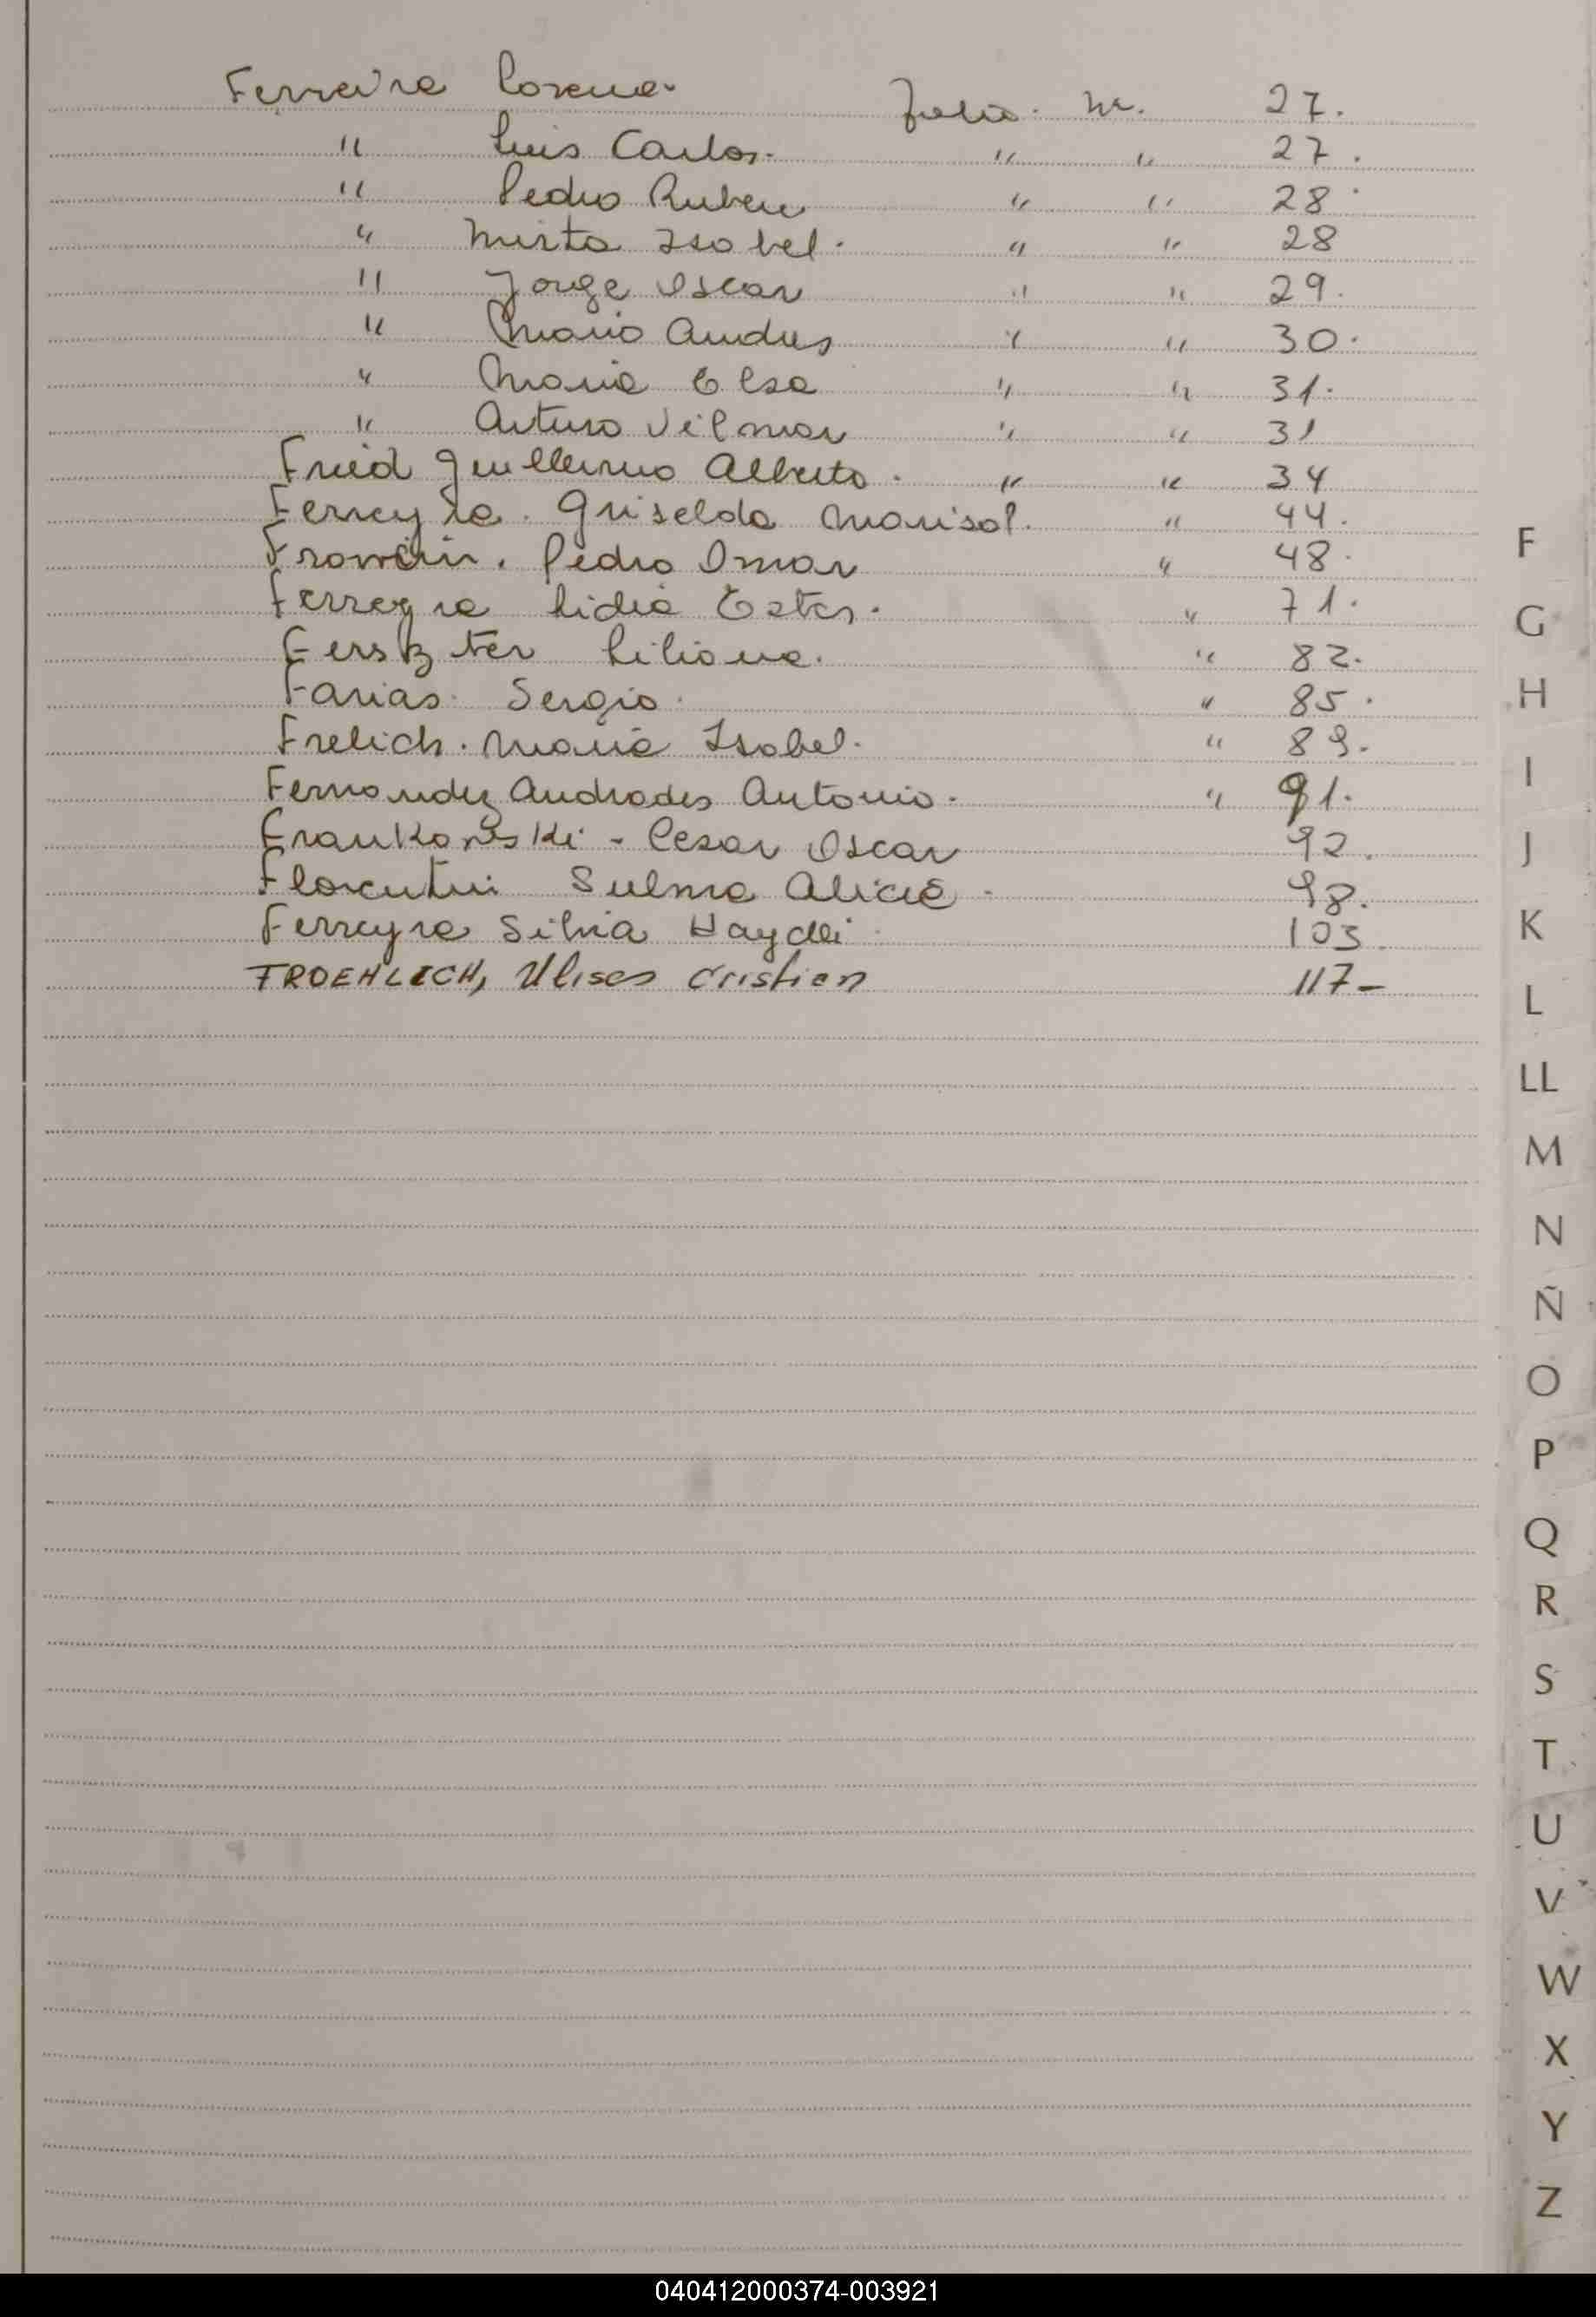 Ferreira Lorena. Folio. Nr. 27.
" Luis Carlos. " " 27.
" Pedro Ruben " " 28.
" Mirta Isabel. " " 28
" Jorge Oscar " " 29.
" Mario Andres " " 30.
" Maria Elsa " " 31.
" Arturo Vilmar " " 31
Fried Guillermo Alberto. " " 34
Ferreyra. Griselda Marisol. " 44.
Pedro Omar " 48.
Ferreyra Lidia Ester. " 71.
Ferszter Liliana. " 82.
Farias. Sergio. " 85.
Frelich. Maria Isabel. " 89.
Fernandez Andrades Antonio. " 91.
Frankowski - Cesar Oscar 92.
Florentin Sulma Alicia. 98.
Ferreyra Silvia Haydei 103.
FROEHLICH, Ulises Cristian 117-
F
G
H
I
J
K
L
LL
M
N
Ñ
O
P
Q
R
S
T
U
V
W
X
Y
Z
040412000374-003921